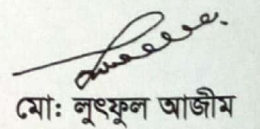 মো: লুৎফুল আজীম